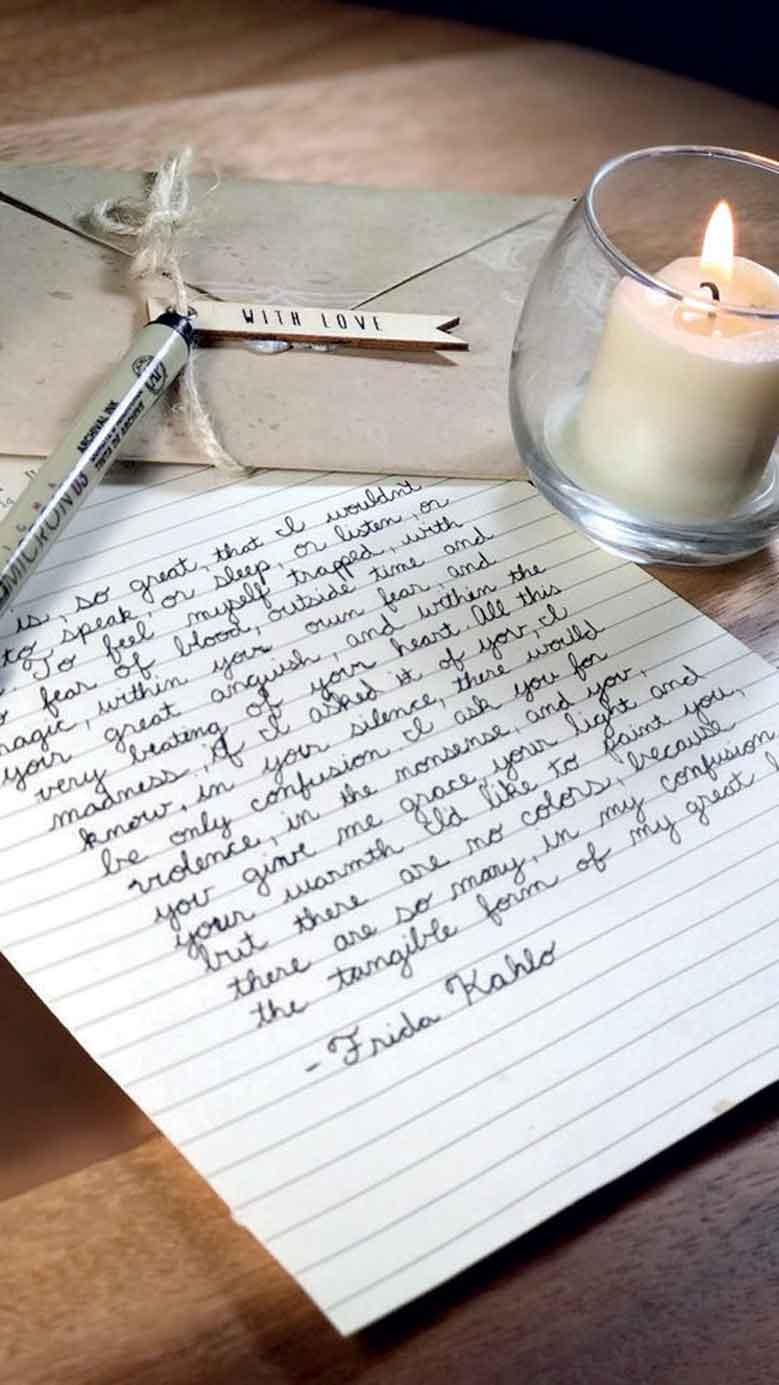 WITH LOVE
ARCHIVAL INK
MICRON 05
is, so great, that I wouldn't
to speak, or sleep, or listen, or
To feel myself trapped, with
fear of blood, outside time and
magic, within your own fear, and
your great anguish, and within the
very beating of your heart. All this
madness, if I asked it of you, I
know, in your silence, there would
be only confusion. I ask you for
violence, in the nonsense, and you,
you give me grace, your light and
your warmth. I'd like to paint you,
but there are no colors, because
there are so many, in my confusion
the tangible form of my great
- Frida Kahlo